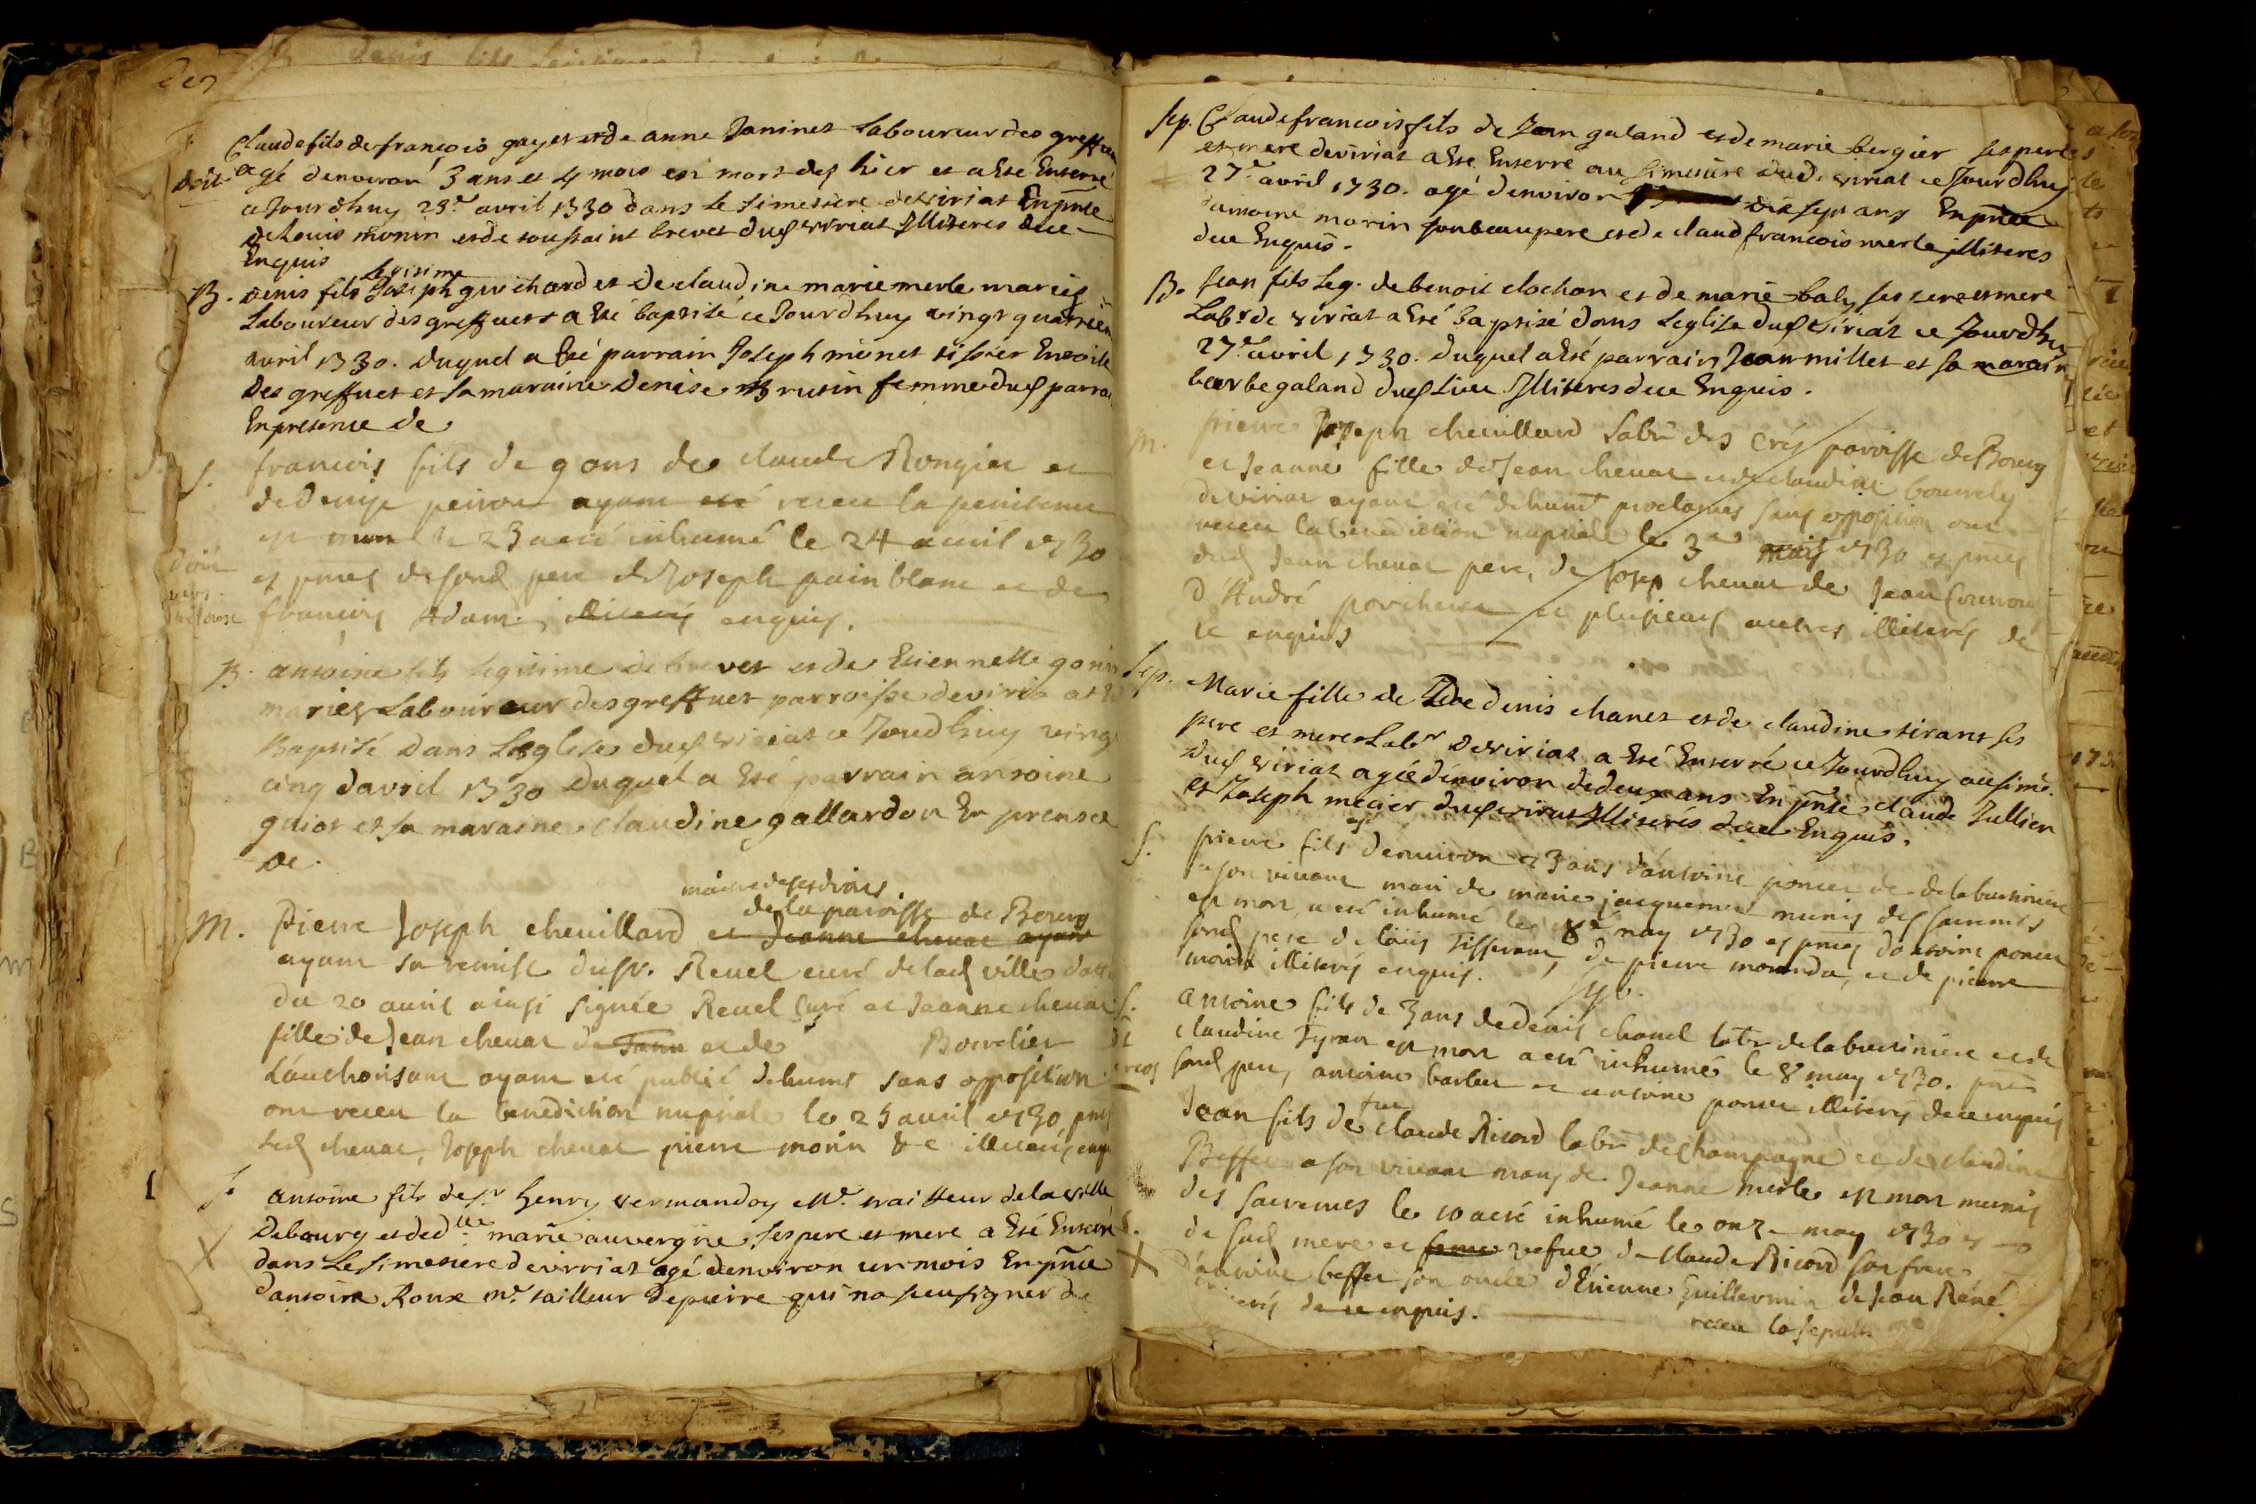 Claude fils de françois gayet et de anne Janinet Laboureur des greffuet
doit agé denviron 3 ans et 4 mois est mort des hier et a Esté Enterré
a Jourdhuy 23e avril 1730 dans le simetiere de viriat En pnce
de Louis monin et de toussaint brevet dud viriat Illiteres de ce
Enquis
legitime
B. Denis fils Joseph guichard et de claudine marie merle mariés
Laboureur des greffuet a Eté baptisé ce Jourdhuy vingt quatrieme
avril 1730. duquel a Esté parrain Joseph monet tissier En toile
Des greffuet et sa maraine Denise rutin femme dud parrain
En presence de
S. francois fils de 9 ans de claude Rongier et
de Denise peiroux ayant esté receu la penitence
est mort le 23 a eté inhumé le 24 avril 1730
es pnces desond pere de Joseph painblanc et de
francois Adam illiterés enquis.
B. antoine fils legitime de brevet et de Etiennette gonin
mariés Laboureur des greffuet parroisse de viriat a Eté
Baptisé dans Leglise dud viriat ce Jourdhuy vingt
cinq davril 1730 duquel a Eté parrain antoine
guiot et sa maraine claudine gallardon En presence
de
de la paroisse de Bourg
M. Pierre Joseph chevillard et Jeanne chevat ayant
ayant sa remise du Sr. Revel curé de lad ville datte
du 20 avril ainsi signée Revel curé et Jeanne chevat
fille de Jean chevat de et de Bourdier
L'authorisant ayant eté publié dehument sans opposition
ont receu la benediction nuptiale le 25 avril 1730 pnts
led chevat, Joseph chevat pierre morin &c illiterés enquis
S. antoine fils de Sr henry vermandoy Me. traitteur de la ville
De bourg et de dlle marie auvergne ses pere et mere a Eté Enterré
dans Le simetiere de virriat agé denviron un mois En pnce
dantoine Roux me. tailleur de pierre qui na sceu signer de
Sep. Claude francois fils de Jean galand et de marie bergier ses pere
et mere de viriat a Eté Enterré au simetiere dud. viriat ce Jourdhuy
27e avril 1730. agé denviron dix sept ans En pnce
dantoine morin son beau pere et de claud francois merle illiteres
de ce Enquis.
B. Jean fils Leg. de benoit clochon et de marie baly ses pere et mere
Labr de viriat a Eté Baptisé dans Leglise dud viriat ce Jourdhuy
27e avril 1730. duquel a Eté parrain Jean millet et sa maraine
barbe galand dud Lieu Illiteres de ce Enquis.
M. Pierre Joseph chevillard Labr des Crès parroisse de Bourg
et Jeanne fille de Jean chevat et de claudine bourdy
de viriat ayant eté dehumt proclamés sans opposition ont
receu la benediction nuptiale le 3e may 1730 es pnces
dud Jean chevat pere, de Josep chevat de Jean
D'André porcherat et plusieurs autres illiterés de
ce enquis
Sep. Marie fille de denis chanet et de claudine tirant ses
pere et mere Labr de viriat a Eté Enterré ce Jourdhuy au sime.
dud viriat agée denviron de deux ans En pnce claude Jullien
et Joseph mecier dud viriat Illiterés de ce Enquis.
S. Pierre fils d'environ 23 ans d'antoine poncet de de labutiniere
a son vivant mari de marie jacquemet munis des sacremts
est mort a eté inhumé le 8e may 1730 es pnces d'antoine poncet
sond pere de loüis Tisserant, de pierre moranda, et de pierre
morin illiterés enquis.
S. Antoine fils de 3 ans de denis chanel labr de labutiniere et de
claudine Tyran est mort a eté inhumé le 8 may 1730. pnts
sond pere, antoine barbet et antoine poncet illiterés de ce enquis
feu
Jean fils de claude Ricord labr de champagne et de claudine
Beffet a son vivant mary de Jeanne merle est mort munis
des sacremes le 10 a eté inhumé le onze may 1730 es
de sad mere et femme vefue de claude Ricord son frere
d'antoine beffet son oncle d'Etienne Guillermin de Jean René
de ce enquis.
receu la